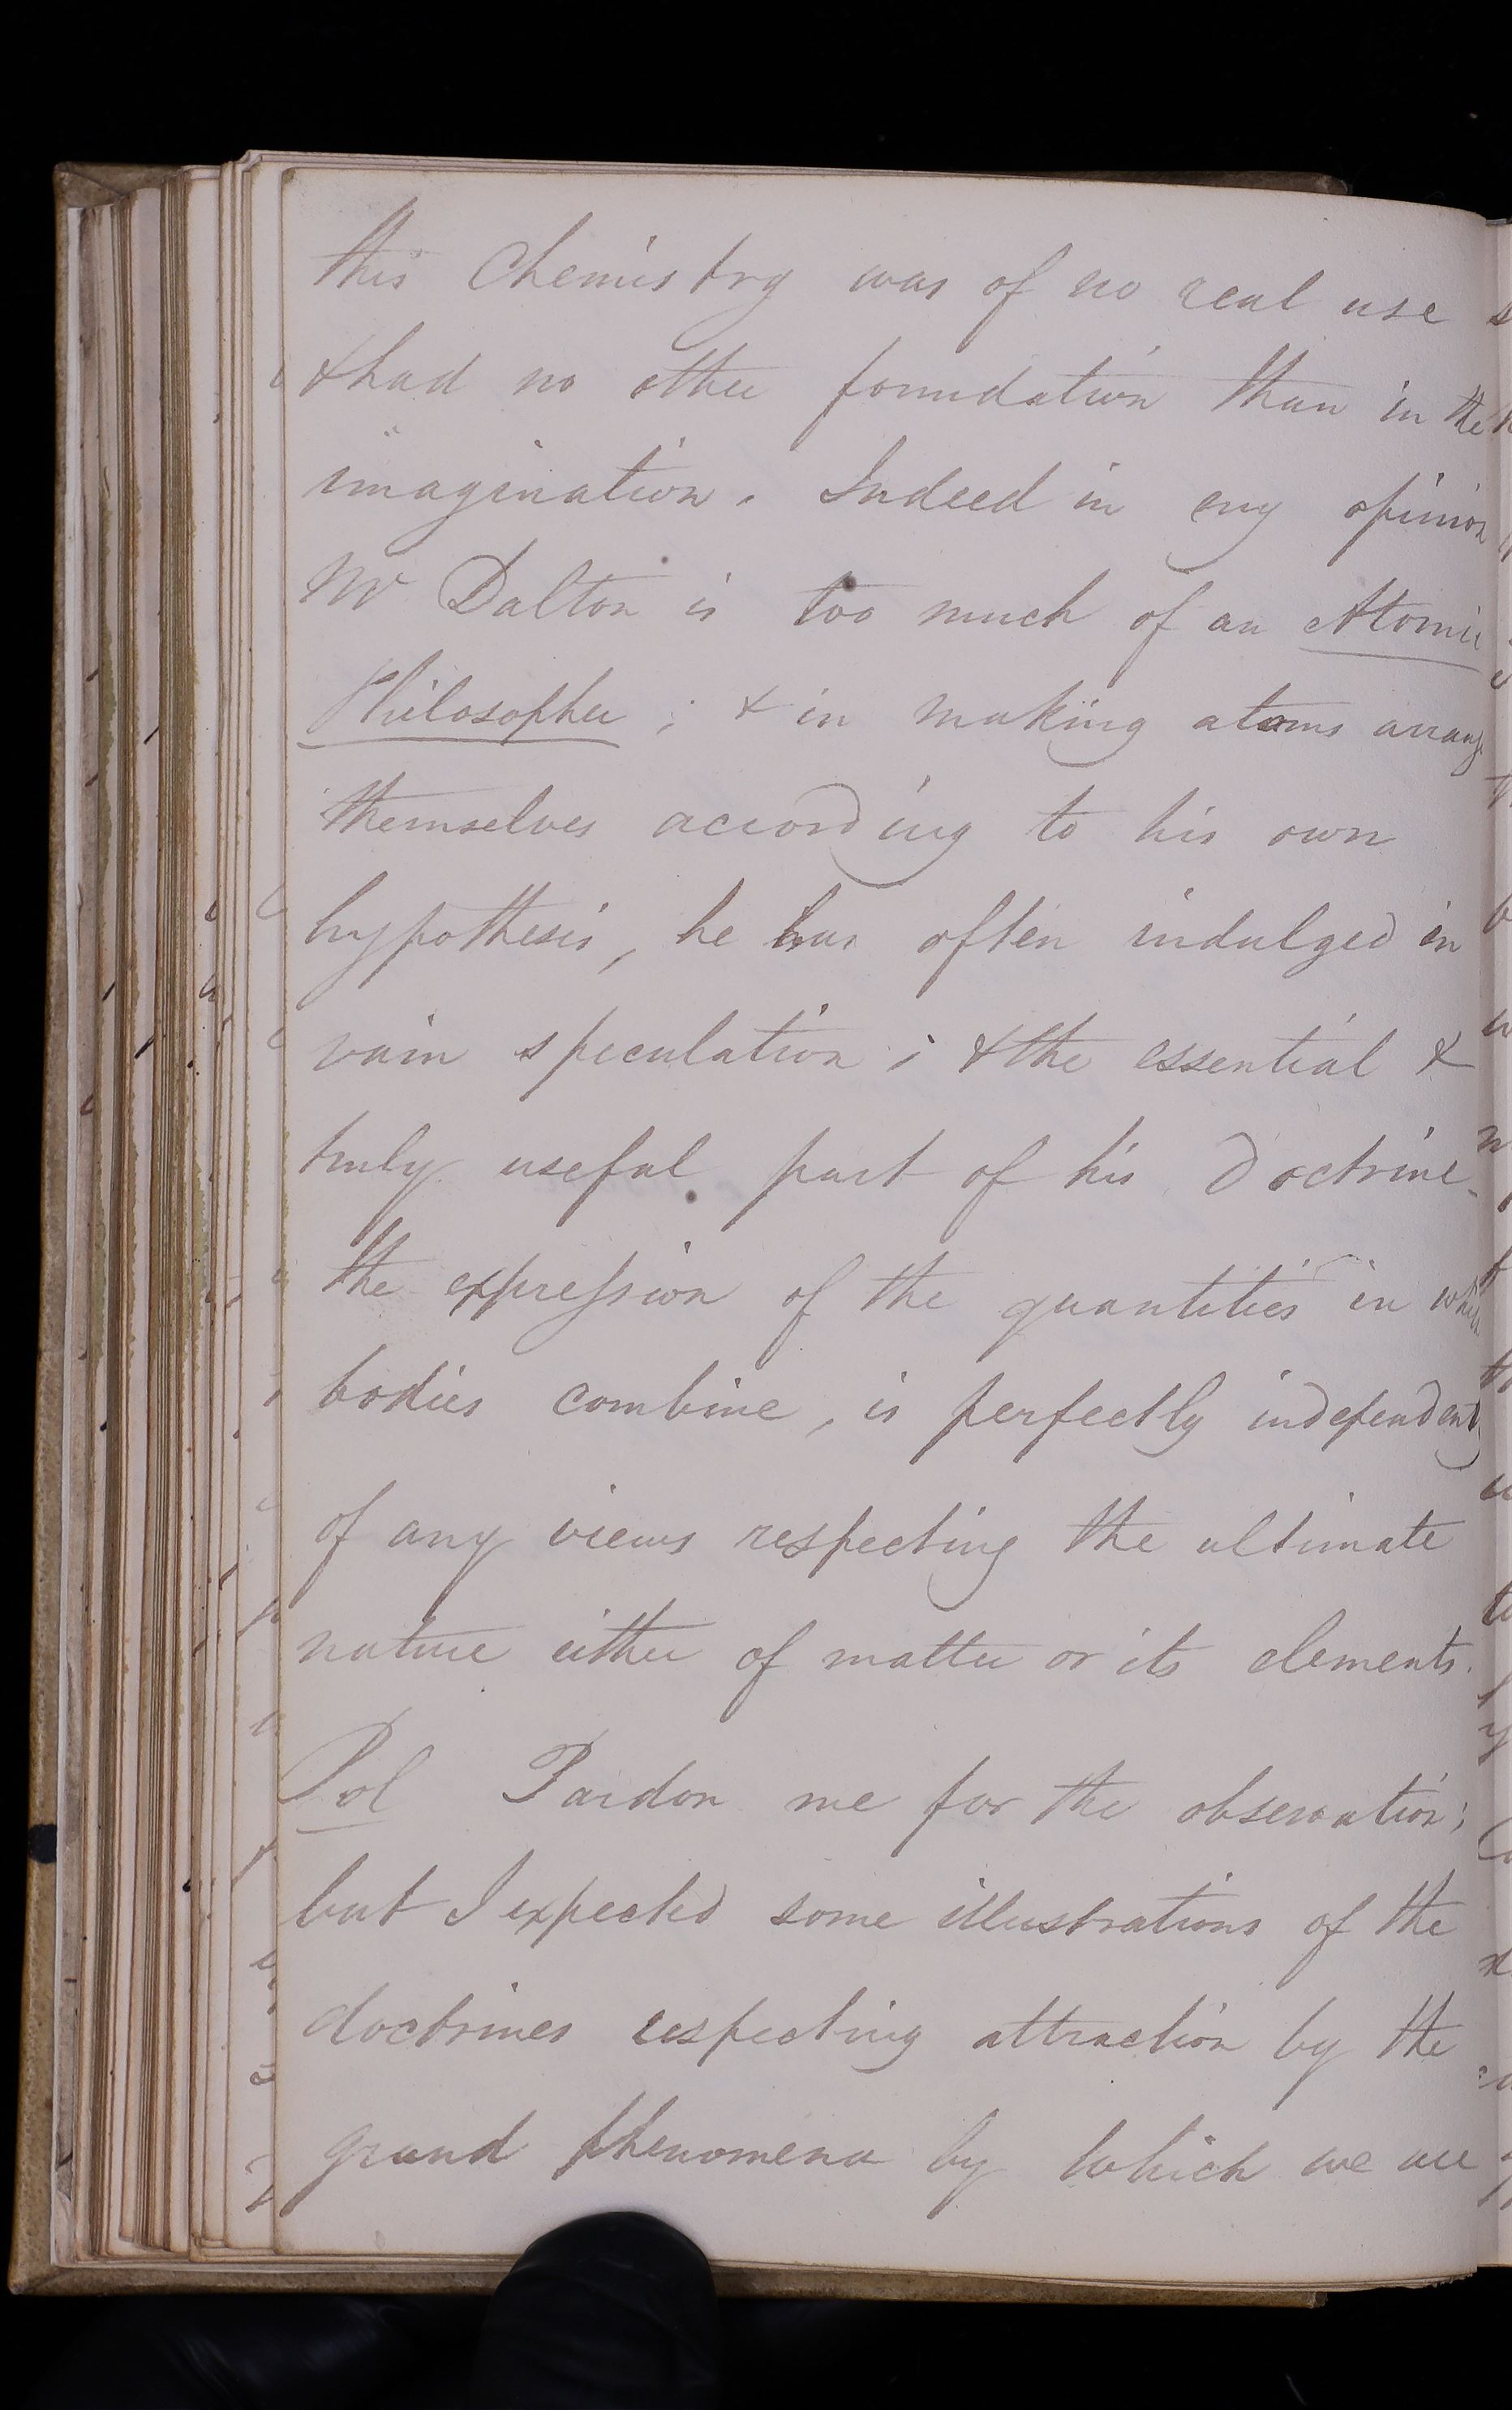 this Chemistry was of no real use
& had no other foundation than in the
imagination. Indeed in my opinion
Mr Dalton is too much of an Atomic
Philosopher; & in making atoms arrange
themselves according to his own
hypothesis, he has often indulged in
vain speculation; & the essential &
truly useful part of his doctrine -
the expression of the quantities in which
bodies combine, is perfectly independent
of any views respecting the ultimate
nature either of matter or its elements.
Pol Pardon me for the observation;
but I expected some illustrations of the
doctrines respecting attraction by the
grand phenomena by which we are